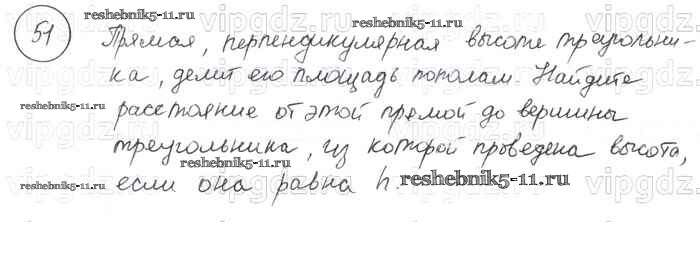 51
reshebnik5-11.ru
reshebnik5-11.ru
Прямая, перпендикулярная высоте треугольни-
ка, делит его площадь пополам. Найдите
reshebnik5-11.ru
reshebnik5-11.ru
расстояние от этой прямой до вершины
треугольника, из которой проведена высота,
reshebnik5-11.ru
если она равна h.
reshebnik5-11.ru
reshebnik5-11.ru
vipgdz.ru